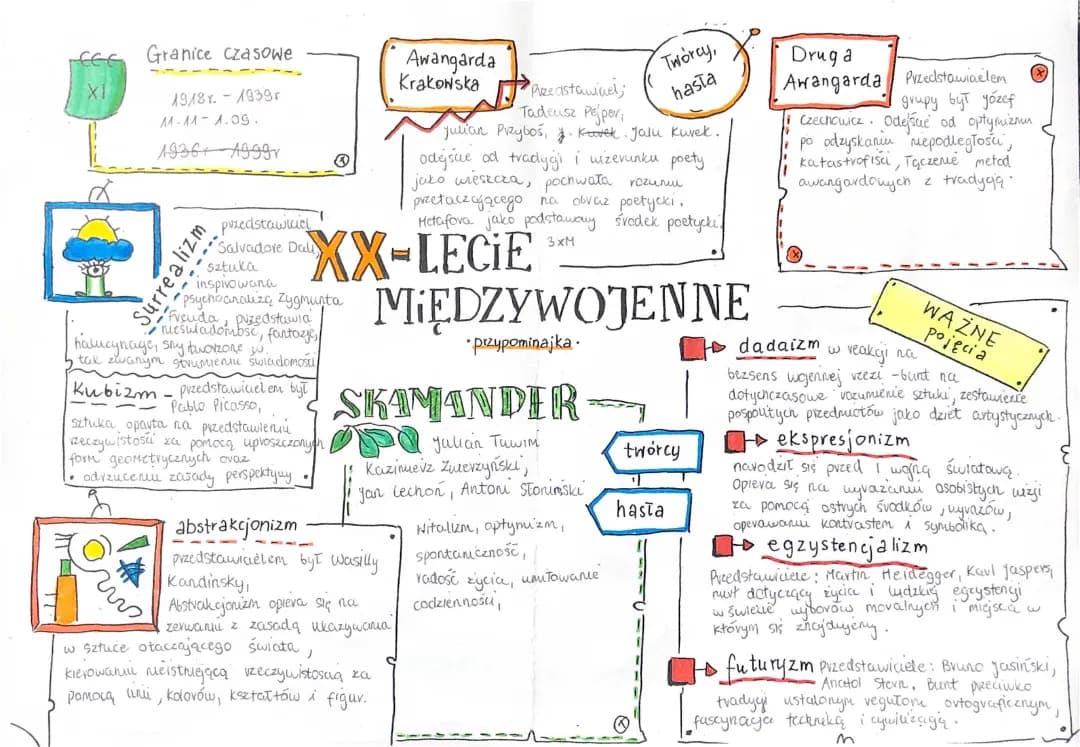 XI
Granice czasowe
1918r. - 1939r
11.11 - 1.09.
1936r - 1999r
Awangarda
Krakowska
Twórcy,
hasła
Przedstawiciel;
Tadeusz Pejper,
Julian Przyboś, J. Kurek. Jalu Kurek.
odejście od tradycji i wizerunku poety
jako wieszcza, pochwała rozumu
przetaczającego na obraz poetycki.
Metafora jako podstawowy środek poetycki.
3xM
Druga
Awangarda
Przedstawicielem
grupy był Józef
Czechowicz. Odejście od optymizmu
po odzyskaniu niepodległości,
katastrofiści, łączenie metod
awangardowych z tradycją.
Surrealizm
przedstawiciel
Salvadore Dali,
sztuka
inspirowana
psychoanalizą Zygmunta
Freuda, przedstawia
nieświadomość, fantazje,
halucynacje, sny tworzone w
tak zwanym strumieniu świadomości
Kubizm - przedstawicielem był
Pablo Picasso,
sztuka oparta na przedstawieniu
rzeczywistości za pomocą uproszczonych
form geometrycznych oraz
odrzuceniu zasady perspektywy.
abstrakcjonizm
przedstawicielem był Wasilly
Kandinsky,
Abstrakcjonizm opiera się na
zerwaniu z zasadą ukazywania
w sztuce otaczającego świata,
kierowaniu nieistniejącą rzeczywistością za
pomocą linii, kolorów, kształtów i figur.
XX-LECIE
MIĘDZYWOJENNE
·przypominajka·
SKAMANDER
Julian Tuwim
Kazimierz Zwierzyński,
Jan Lechoń, Antoni Słonimski
twórcy
hasła
Witalizm, optymizm,
spontaniczność,
radość życia, umiłowanie
codzienności,
WAŻNE
pojęcia
dadaizm w reakcji na
bezsens wojennej rzezi - bunt na
dotychczasowe rozumienie sztuki, zestawienie
pospolitych przedmiotów jako dzieł artystycznych.
ekspresjonizm
narodził się przed I wojną światową.
Opiera się na wyrażaniu osobistych wizji
za pomocą ostrych środków, wyrazów,
operowaniu kontrastem i symboliką.
egzystencjalizm
Przedstawiciele: Martin Heidegger, Karl Jaspers,
nurt dotyczący życia i ludzkiej egzystencji
w świetle wyborów moralnych i miejsca w
którym się znajdujemy.
futuryzm Przedstawiciele: Bruno Jasiński,
Anatol Stern. Bunt przeciwko
tradycji ustalonym regułom ortograficznym,
fascynacja techniką i cywilizacją.